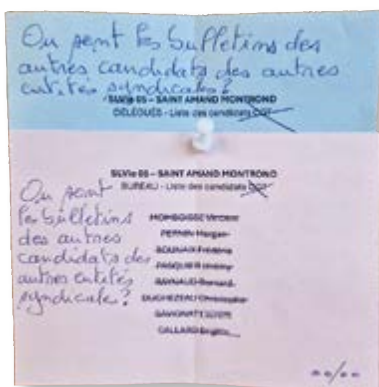 Ou sont les bulletins des
autres candidats des autres
entités syndicales?
SLVie 05 – SAINT AMAND MONTROND
DÉLÉGUÉS - Liste des candidats CGT
SLVie 05 – SAINT AMAND MONTROND
BUREAU - Liste des candidats CGT
Ou sont
les bulletins
des autres
candidats des
autres entités
syndicale?
MOMBOISSE
PERNIN Morgan
Frédéric
PASQUIER Jérémy
RAYNAUD Bernard
DUCHEZEAU Christophe
GALLARD Brigitte